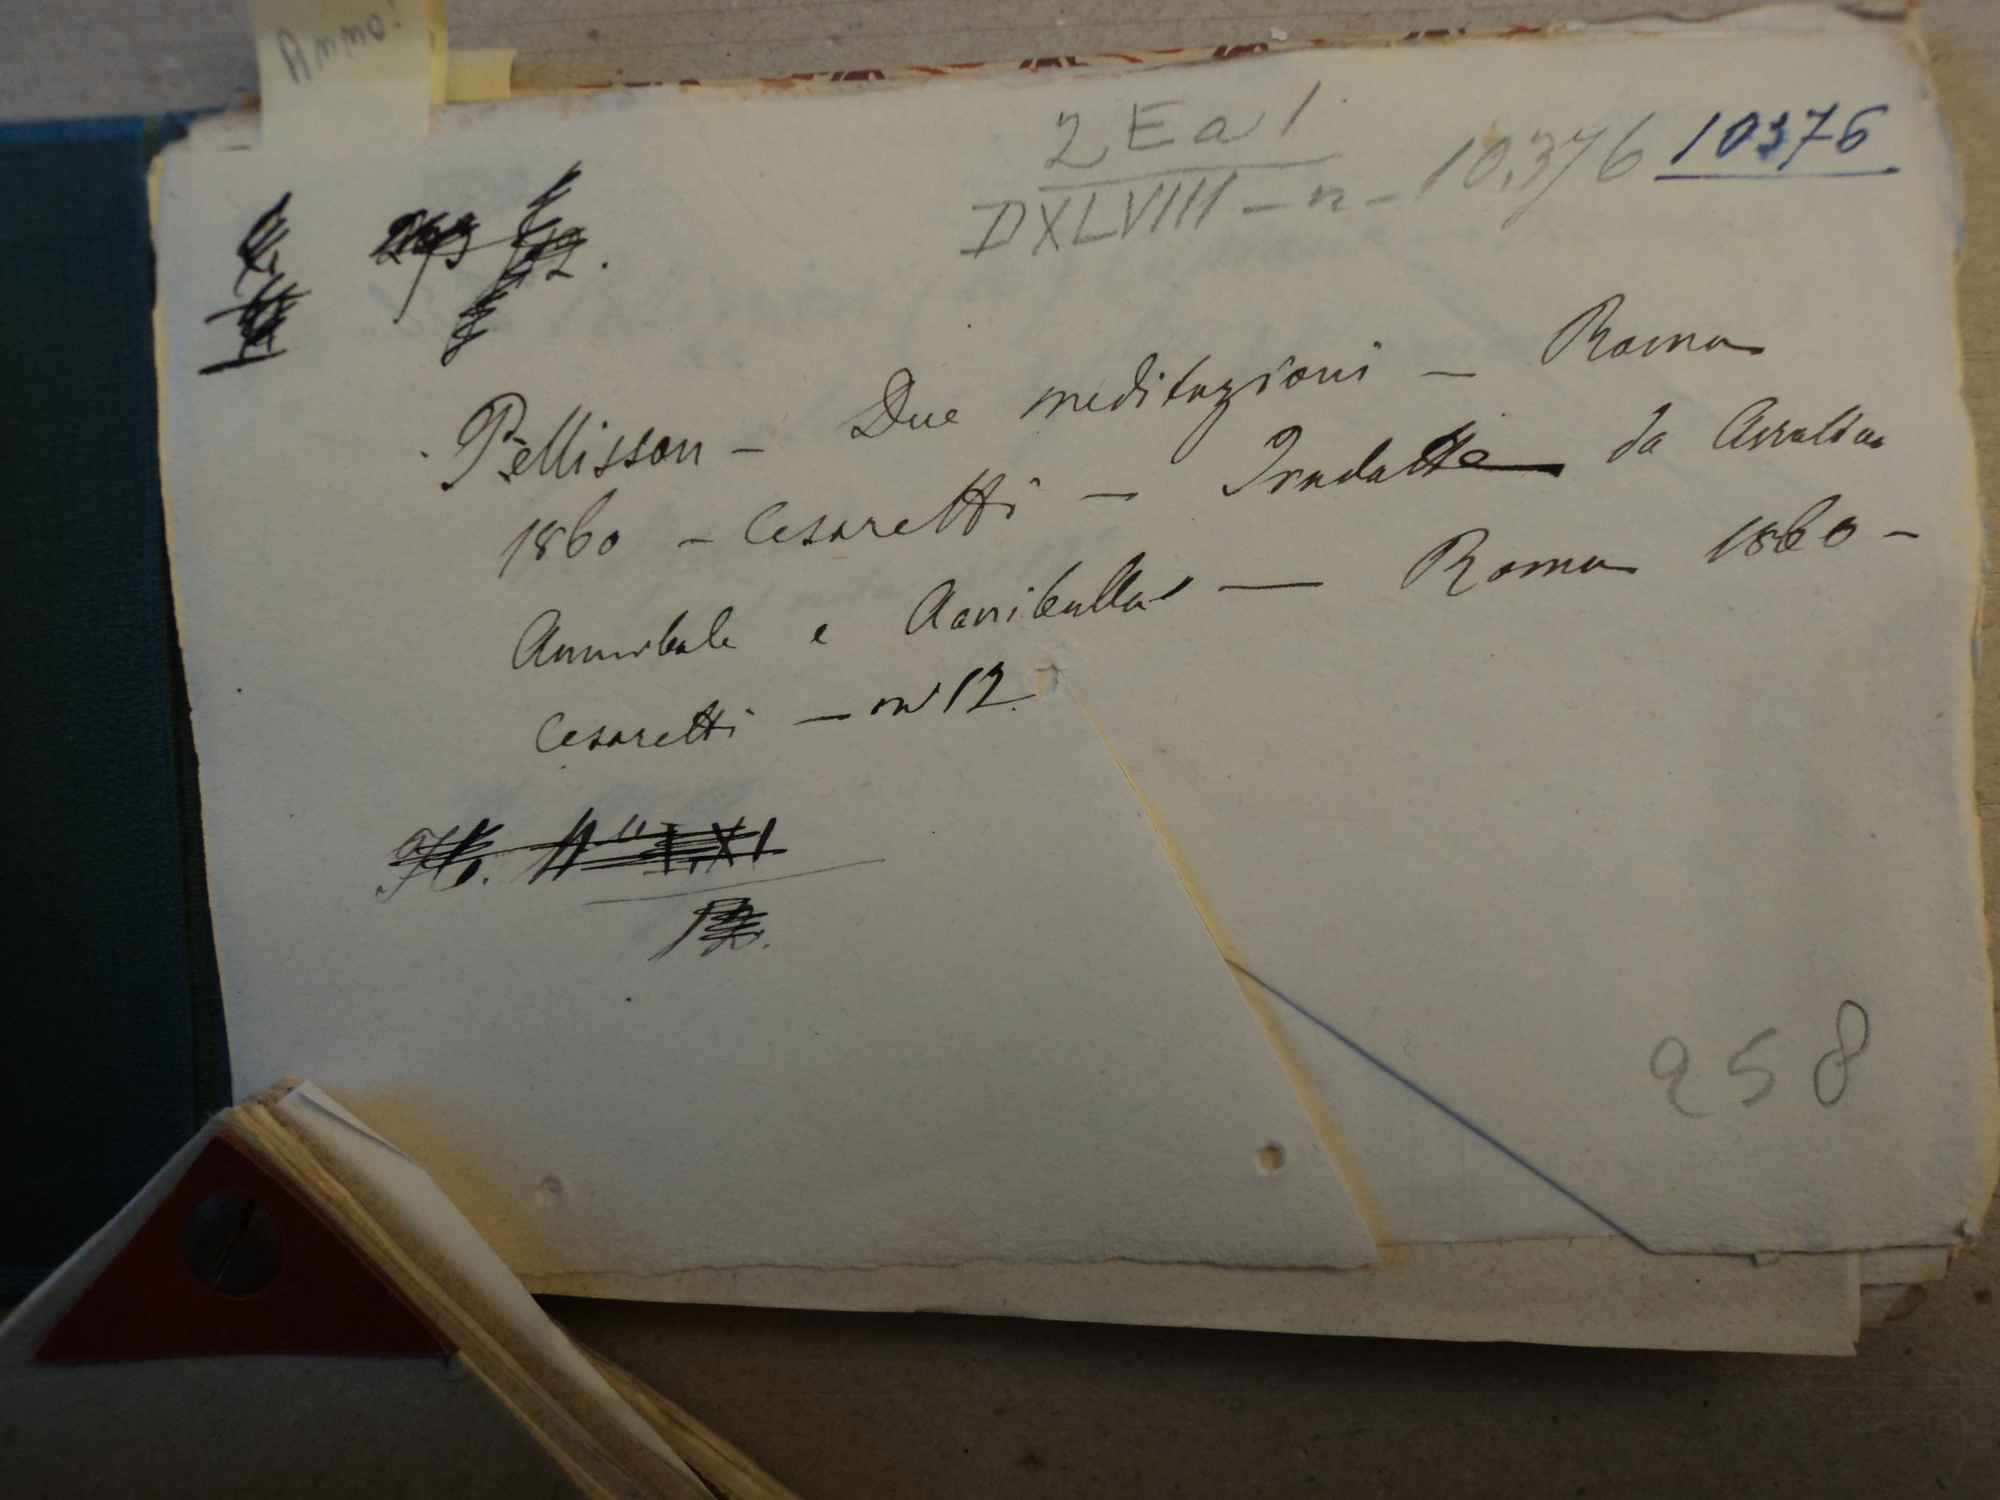 Ammo!
2 E a 1
DXLVIII - n - 10,376 10376
Pellisson - Due meditazioni - Roma
1860 - Cesaretti - Tradatte da
Annibale e Annibulla - Roma 1860 -
Cesaretti - in 12.
258